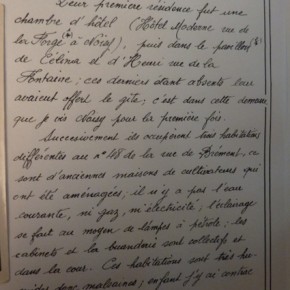 Leur première résidence fut une
chambre d'hôtel (Hôtel Moderne rue de
la Forge à Noisy), puis dans le pavillon
de Célina et d'Henri rue de la
Fontaine ; ces derniers étant absents leur
avaient offert le gîte ; c'est dans cette demeure
que je vis Noisy pour la première fois.
Successivement ils occupèrent trois habitations
différentes au n° 48 de la rue de Brément, ce
sont d'anciennes maisons de cultivateurs qui
ont été aménagées, il n'y a pas l'eau
courante, ni gaz, ni électricité, l'éclairage
se fait au moyen de lampes à pétrole ; les
cabinets et la buanderie sont collectifs et
dans la cour. Ces habitations sont très hu-
mides donc malsaines ; enfant j'y ai contrac